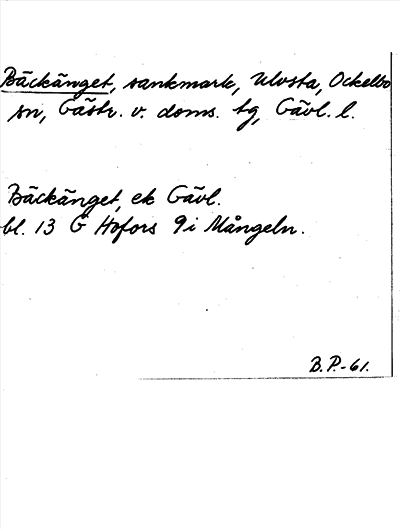 Bäckänget, sankmark, Ulvsta, Ockelbo
sn, Gästr. v. doms. tg, Gävl. l.
Bäckänget, ek Gävl.
bl. 13 G Hofors 9 i Mångeln.
B.P.-61.